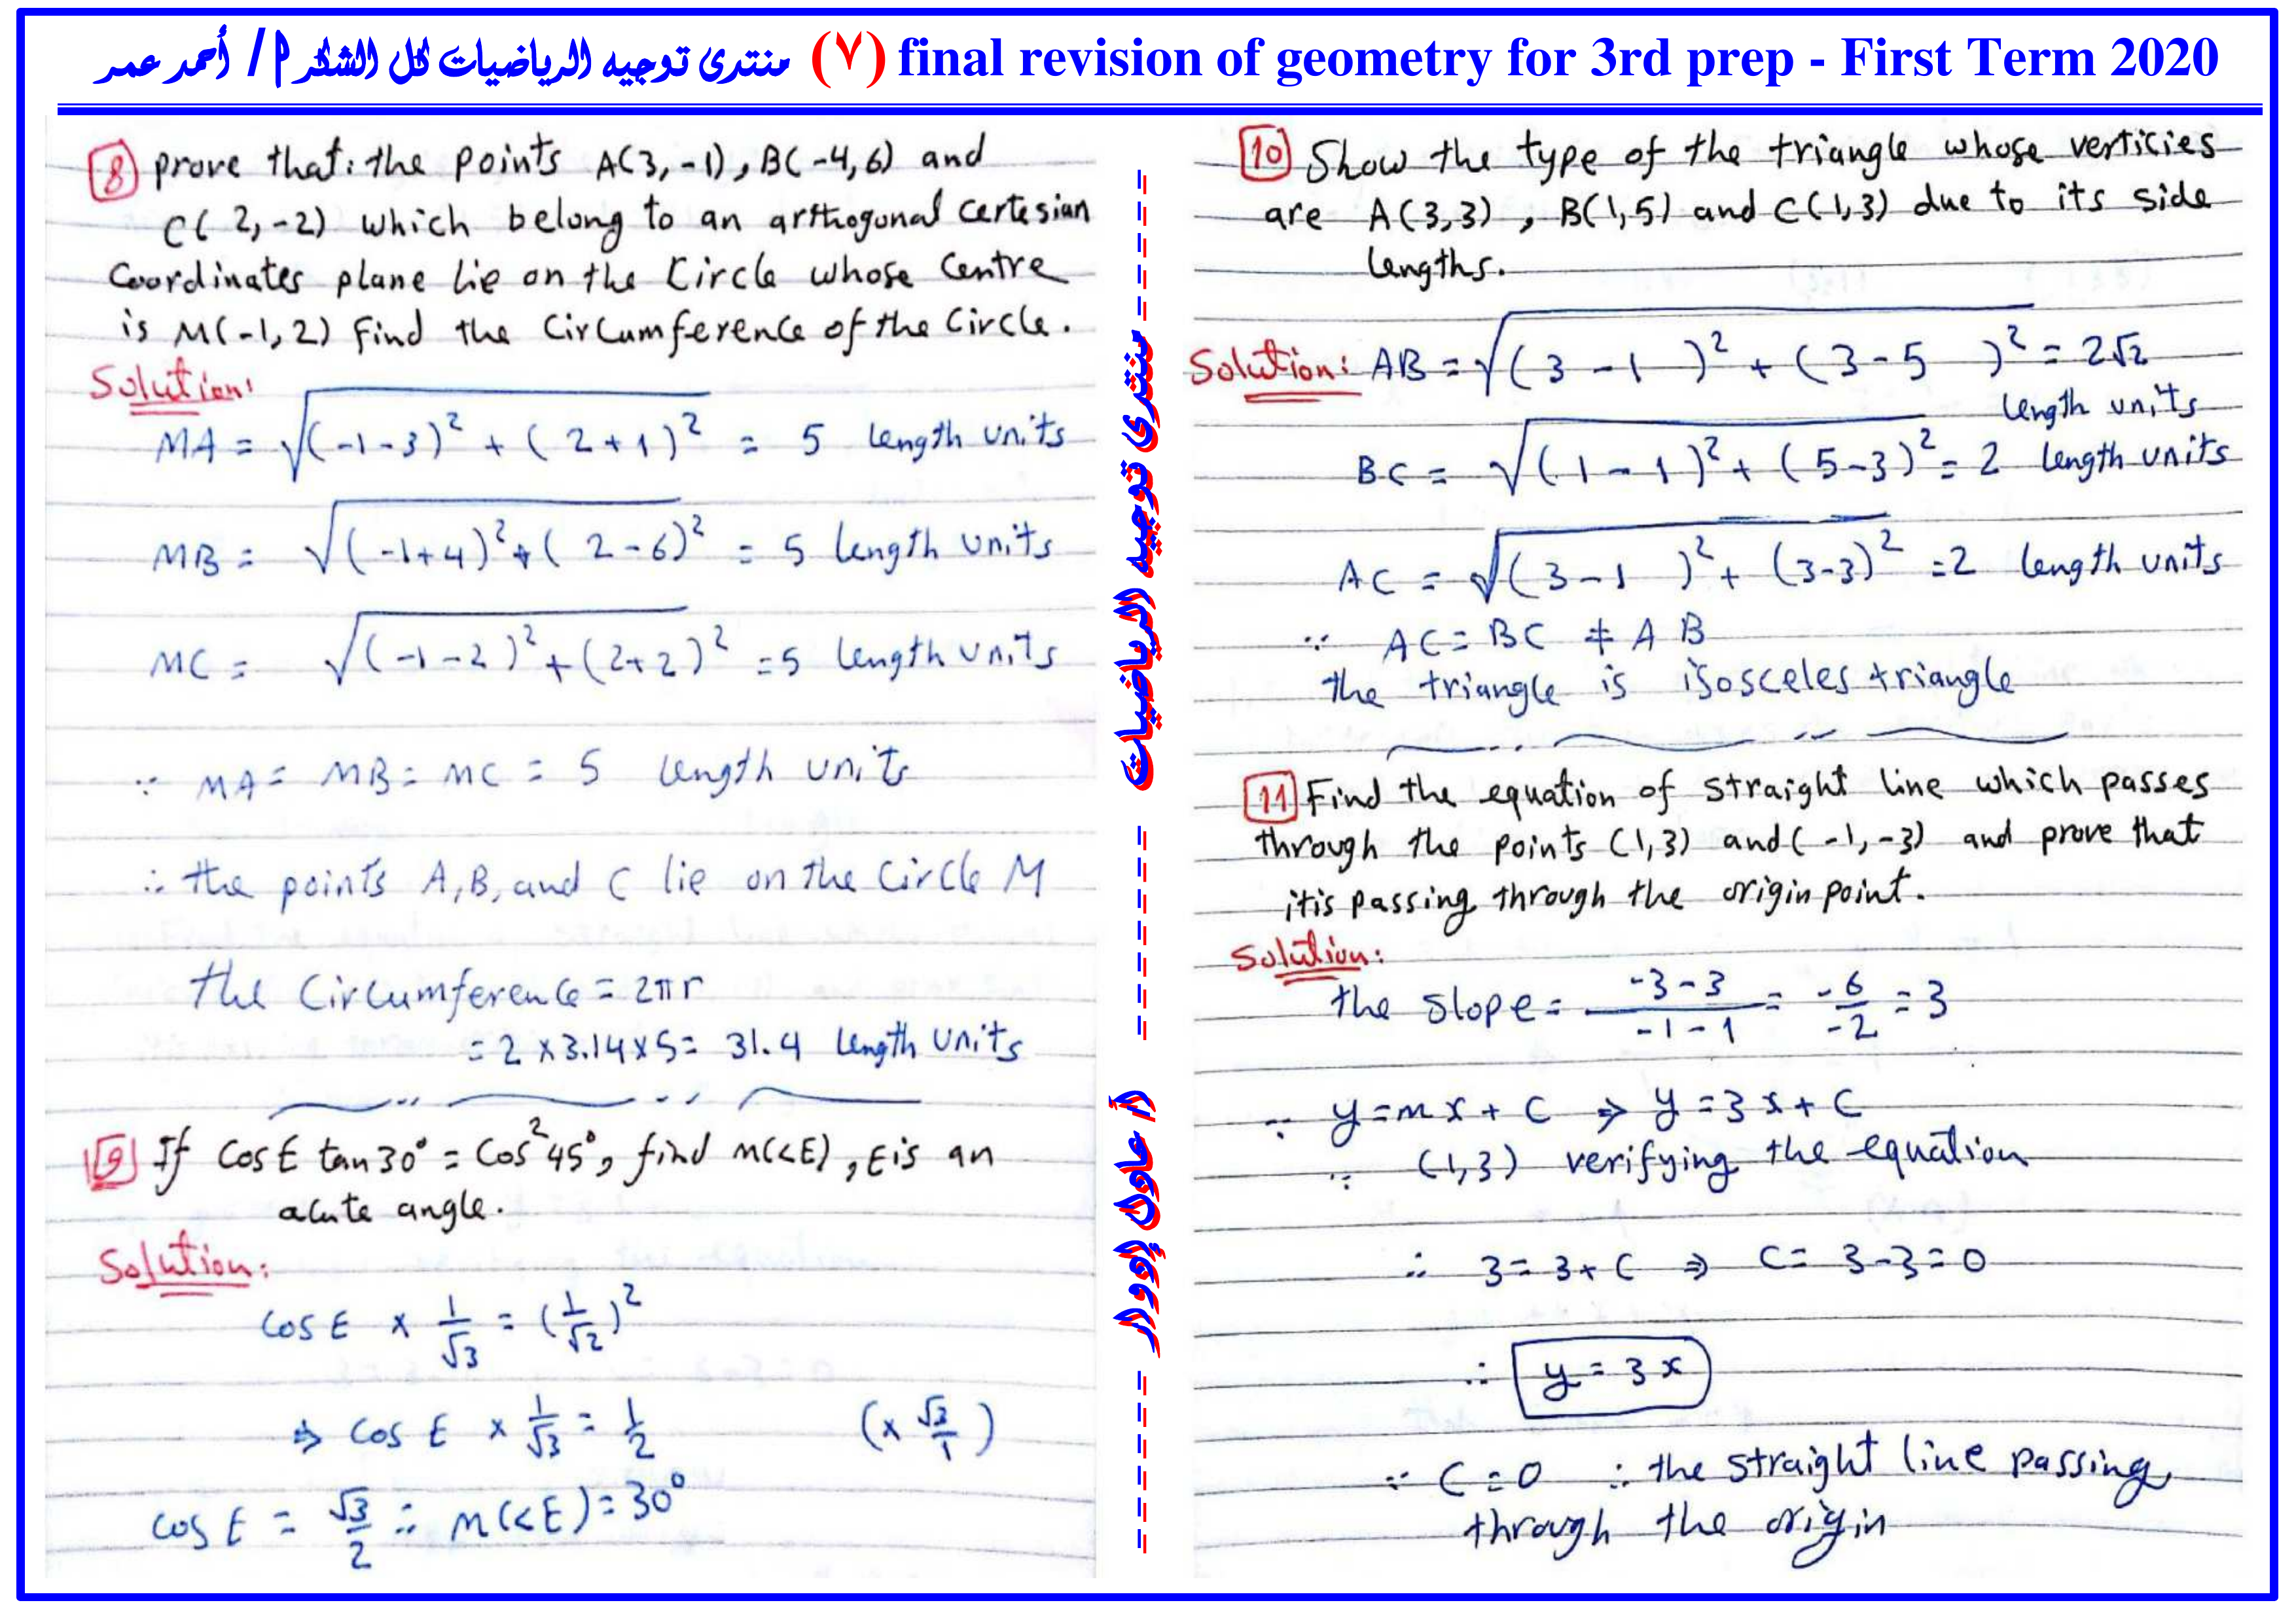 final revision of geometry for 3rd prep - First Term 2020 (٧) منتدى توجيه الرياضيات كل الشكر أ / أحمد عمر
8 prove that: the points A(3, -1), B(-4, 6) and
C(2, -2) which belong to an arthogonal certesian
Coordinates plane lie on the Circle whose Centre
is M(-1, 2) Find the Circumference of the Circle.
Solution:
MA = √((-1-3)² + (2+1)²) = 5 length units
MB = √((-1+4)² + (2-6)²) = 5 length units
MC = √((-1-2)² + (2+2)²) = 5 length units
∵ MA = MB = MC = 5 length units
∴ the points A, B, and C lie on the Circle M
the Circumference = 2πr
= 2 x 3.14 x 5 = 31.4 length units
9 If Cos E tan 30° = Cos² 45°, find m(<E), E is an
acute angle.
Solution:
Cos E x 1/√3 = (1/√2)²
⇒ Cos E x 1/√3 = 1/2 (x √3/1)
Cos E = √3/2 ∴ m(<E) = 30°
منتدى توجيه الرياضيات
أ/ عادل إدوار
10 Show the type of the triangle whose verticies
are A(3,3), B(1,5) and C(1,3) due to its side
lengths.
Solution: AB = √((3 - 1)² + (3 - 5)²) = 2√2
length units
BC = √((1 - 1)² + (5-3)²) = 2 length units
AC = √((3 - 1)² + (3-3)²) = 2 length units
∵ AC = BC ≠ AB
the triangle is isosceles triangle
11 Find the equation of straight line which passes
through the points (1,3) and (-1, -3) and prove that
it is passing through the origin point.
Solution:
the slope = (-3-3)/(-1-1) = -6/-2 = 3
∵ y = mx + C ⇒ y = 3x + C
∵ (1,3) verifying the equation
∴ 3 = 3 + C ⇒ C = 3-3 = 0
∴ y = 3x
∵ C = 0 ∴ the straight line passing
through the origin